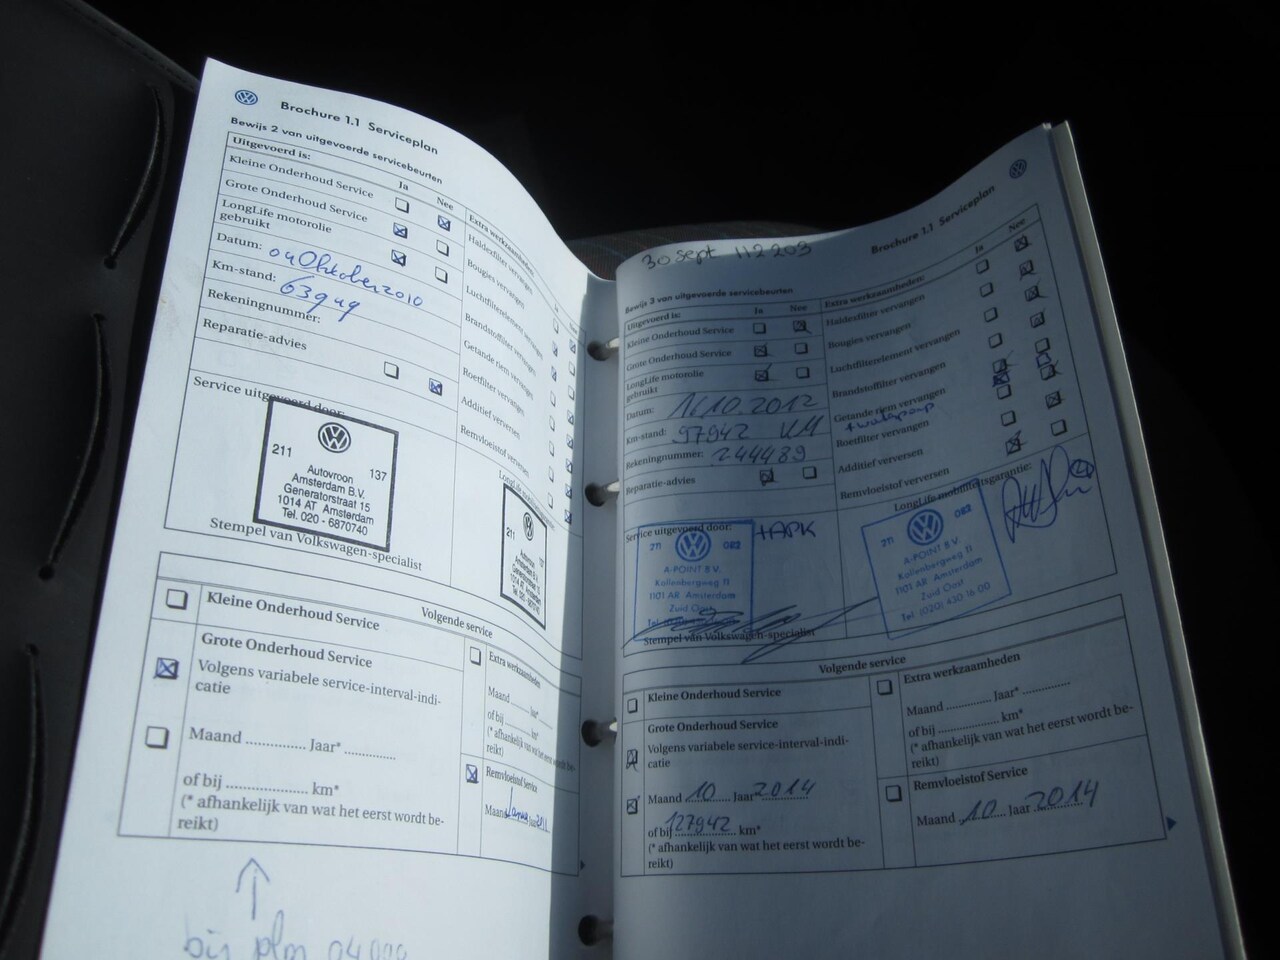 Brochure 1.1 Serviceplan
Bewijs 2 van uitgevoerde servicebeurten
Uitgevoerd is:
Ja
Nee
Kleine Onderhoud Service
Grote Onderhoud Service
LongLife motorolie
gebruikt
Datum: 04 Oktober 2010
Km-stand:
Rekeningnummer:
Reparatie-advies
Extra werkzaamheden:
Haldexfilter vervangen
Bougies vervangen
Luchtfilterelement vervangen
Brandstoffilter vervangen
Getande riem vervangen
Roetfilter vervangen
Additief verversen
Remvloeistof verversen
Service uitgevoerd door:
211
137
Autovroon
Amsterdam B.V.
Generatorstraat 15
1014 AT Amsterdam
Tel. 020 - 6870740
211
Autovroon
Amsterdam B.V.
Stempel van Volkswagen-specialist
Volgende service
Kleine Onderhoud Service
Grote Onderhoud Service
Volgens variabele service-interval-indi-
catie
Maand ............. Jaar* .............
of bij ...................... km*
(* afhankelijk van wat het eerst wordt be-
reikt)
Extra werkzaamheden
Maand
of bij
(* afhankelijk van wat het eerst wordt be-
reikt)
Remvloeistof Service
Maand
30 sept 112203
Brochure 1.1 Serviceplan
Bewijs 3 van uitgevoerde servicebeurten
Uitgevoerd is:
Ja
Nee
Kleine Onderhoud Service
Grote Onderhoud Service
LongLife motorolie
gebruikt
Datum: 16.10.2012
Km-stand: 97942 KM
Rekeningnummer: 244489
Reparatie-advies
Extra werkzaamheden:
Ja
Nee
Haldexfilter vervangen
Bougies vervangen
Luchtfilterelement vervangen
Brandstoffilter vervangen
Getande riem vervangen
Roetfilter vervangen
Additief verversen
Remvloeistof verversen
LongLife mobiliteitsgarantie:
Service uitgevoerd door: +APK
211
082
A-POINT B.V.
Kollenbergweg 11
1101 AR Amsterdam
Zuid Oost
Stempel van Volkswagen-specialist
211
082
A-POINT B.V.
Kollenbergweg 11
1101 AR Amsterdam
Zuid Oost
Tel. (020) 430 16 00
Volgende service
Kleine Onderhoud Service
Grote Onderhoud Service
Volgens variabele service-interval-indi-
catie
Maand 10 Jaar* 2014
of bij 127942 km*
(* afhankelijk van wat het eerst wordt be-
reikt)
Extra werkzaamheden
Maand ............. Jaar* .............
of bij ...................... km*
(* afhankelijk van wat het eerst wordt be-
reikt)
Remvloeistof Service
Maand 10 Jaar 2014